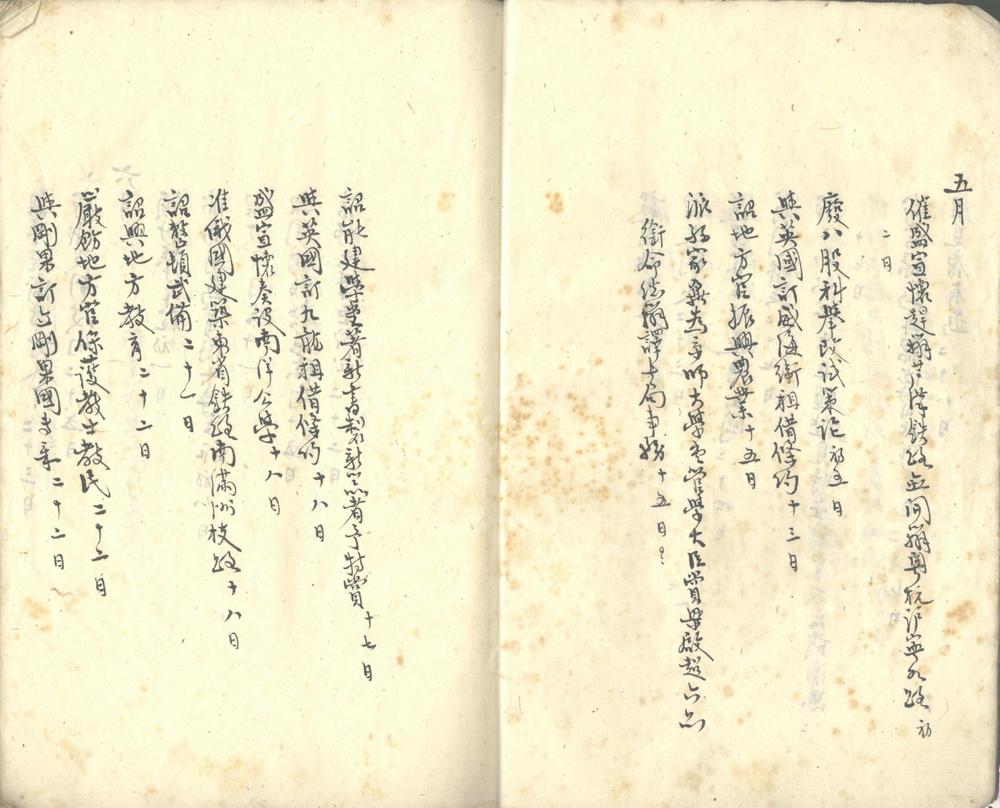 五月
催盛宣懷趕辦蘆漢鉄路並開辦粵杭滬寧各路初
二日
廢八股科舉改試策論初五日
與英國訂威海衛租借條約十三日
詔地方官振興農業十五日
派孫家鼐為京師大學堂管學大臣賞梁啟超六品
銜命往辦譯書局事務十五日
詔能建學堂著新書製新器著予特賞十七日
與英國訂九龍租借條約十八日
盛宣懷奏設南洋公學十八日
准俄國建築東省鉄路南滿洲枝路十八日
詔整頓武備二十一日
詔興地方教育二十二日
嚴飭地方官保護教士教民二十二日
與剛果訂立剛果國專章二十二日